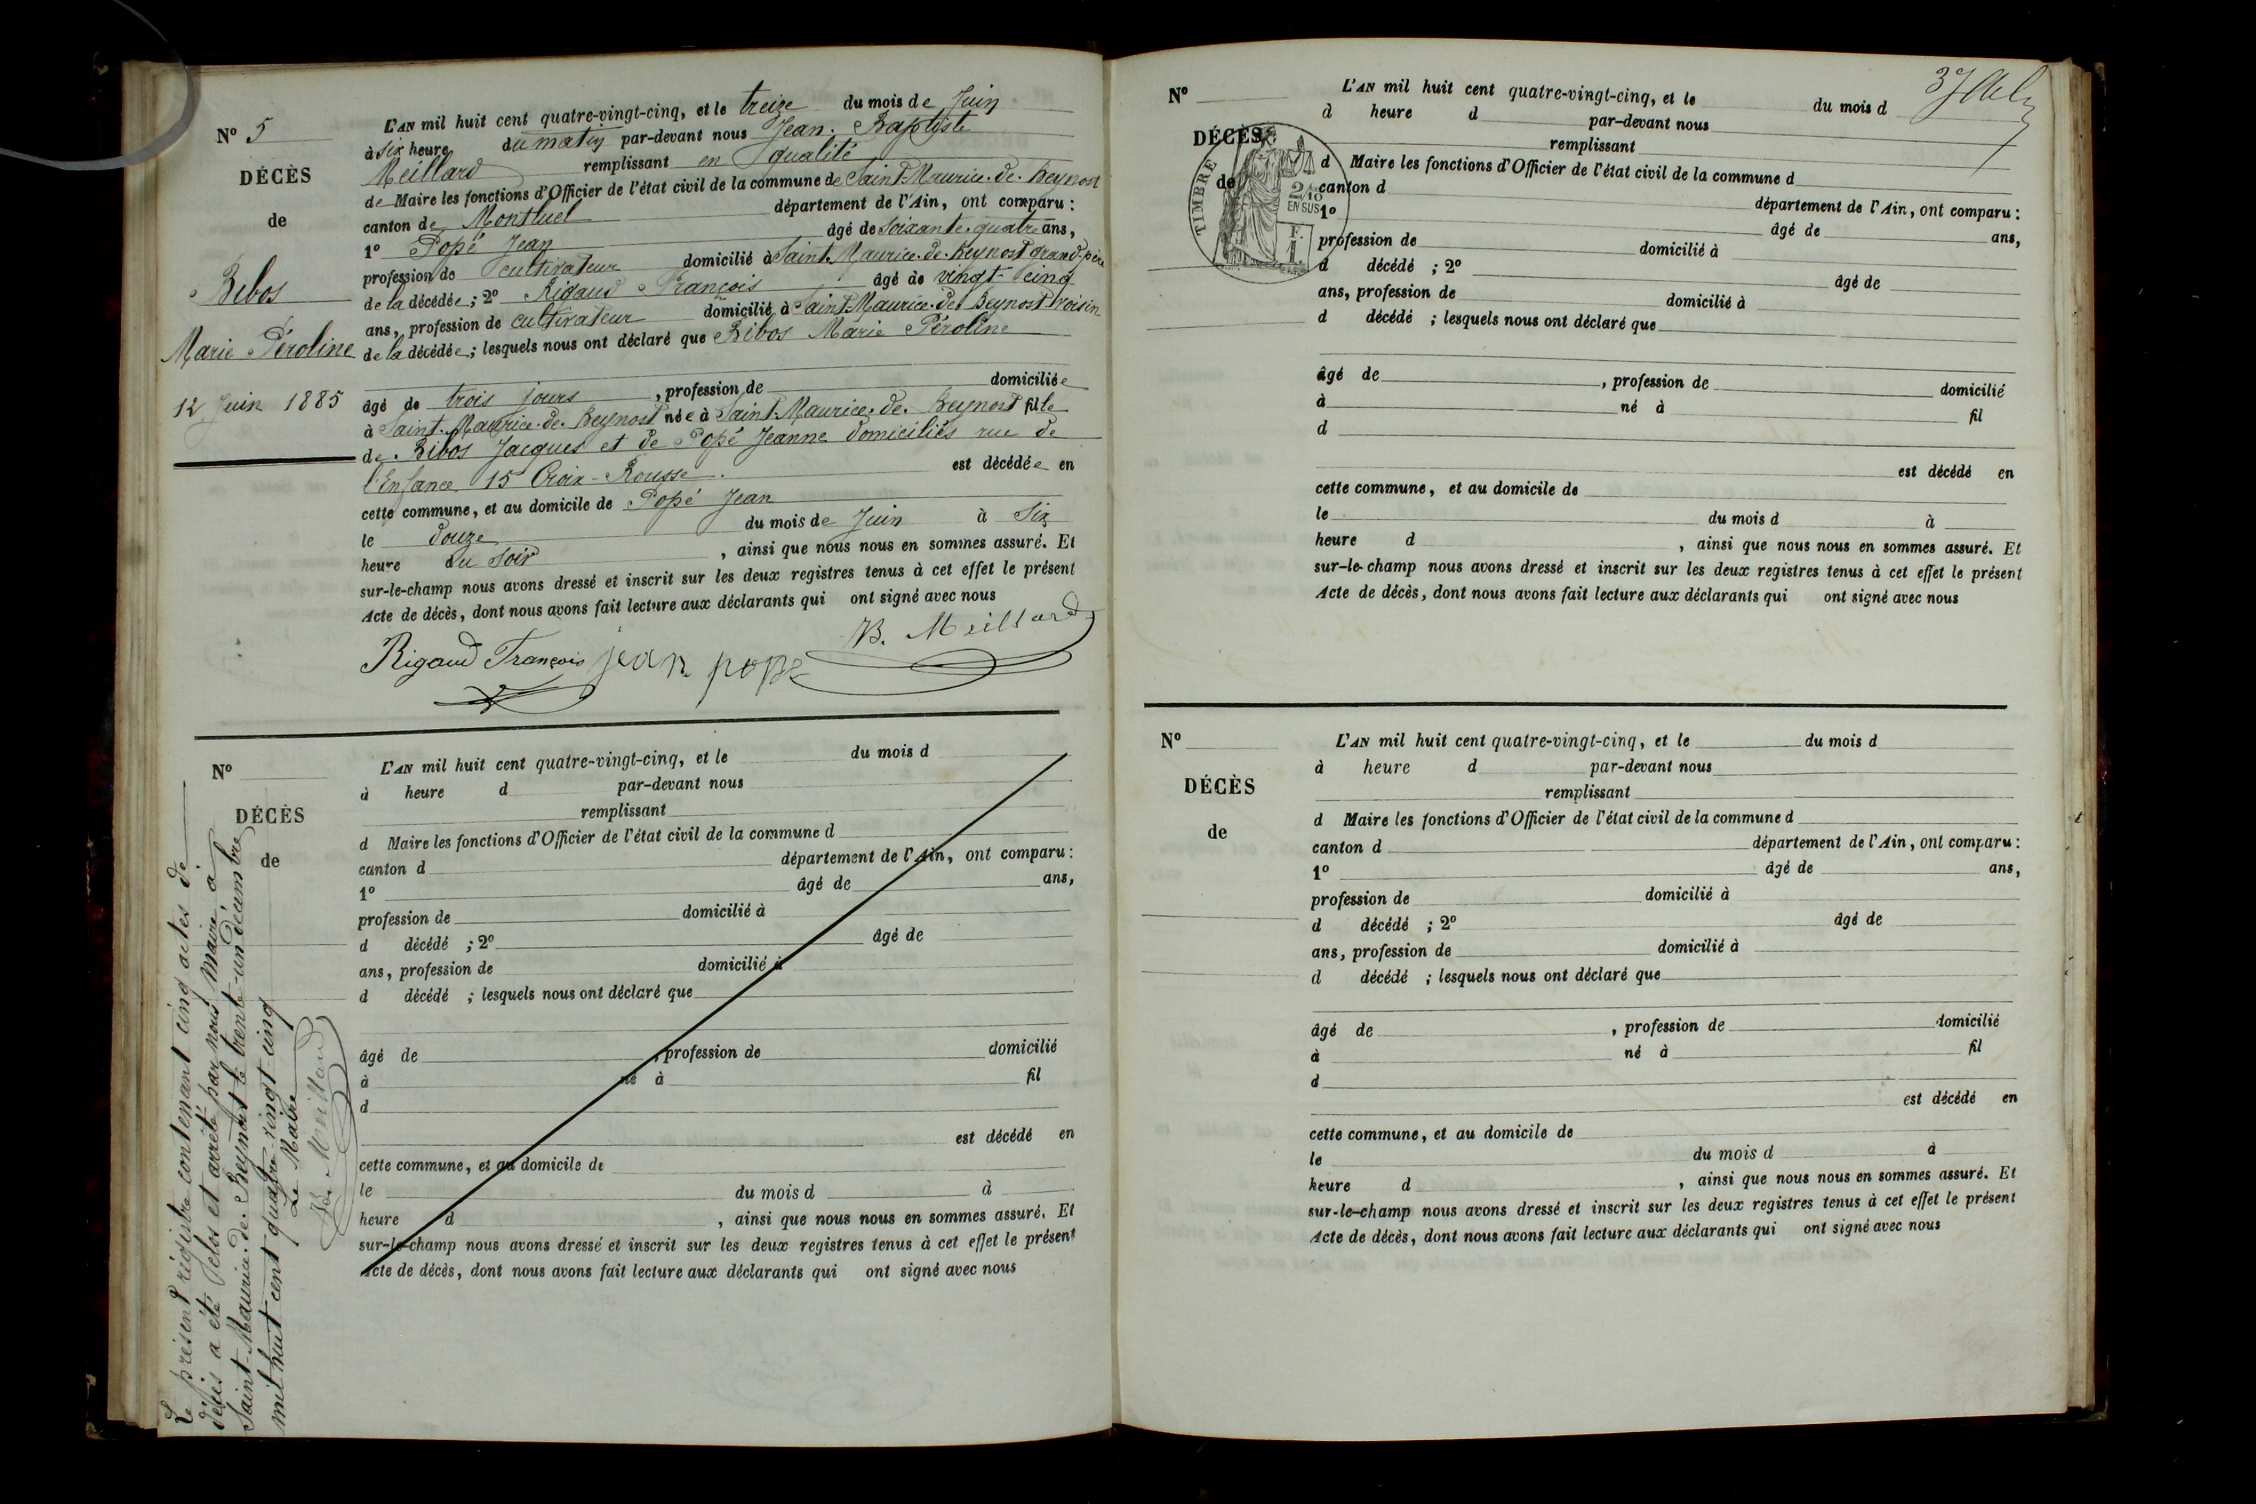 N° 5
DÉCÈS
de
Bibos
Marie Péroline
12 Juin 1885
L'AN mil huit cent quatre-vingt-cinq, et le treize du mois de Juin
à six heure du matin par-devant nous Jean-Baptiste
Meillard remplissant en qualité
de Maire les fonctions d'Officier de l'état civil de la commune de Saint-Maurice-de-Beynost
canton de Montluel département de l'Ain, ont comparu :
1° Popé Jean âgé de soixante-quatre ans,
profession de cultivateur domicilié à Saint-Maurice-de-Beynost grand-père
de la décédée ; 2° Rigaud François âgé de vingt-cinq
ans, profession de cultivateur domicilié à Saint-Maurice-de-Beynost voisin
de la décédée ; lesquels nous ont déclaré que Bibos Marie Péroline
âgé de trois jours , profession de domiciliée
à Saint-Maurice-de-Beynost née à Saint-Maurice-de-Beynost fille
de Bibos Jacques et de Popé Jeanne domiciliés rue de
l'Enfance 15 Croix-Rousse. est décédée en
cette commune, et au domicile de Popé Jean
le douze du mois de Juin à six
heure du soir , ainsi que nous nous en sommes assuré. Et
sur-le-champ nous avons dressé et inscrit sur les deux registres tenus à cet effet le présent
Acte de décès, dont nous avons fait lecture aux déclarants qui ont signé avec nous
Rigaud François jean pope B. Meillard
N°
DÉCÈS
de
L'AN mil huit cent quatre-vingt-cinq, et le du mois d
à heure d par-devant nous
remplissant
d Maire les fonctions d'Officier de l'état civil de la commune d
canton d département de l'Ain, ont comparu :
1° âgé de ans,
profession de domicilié à
d décédé ; 2° âgé de
ans, profession de domicilié à
d décédé ; lesquels nous ont déclaré que
âgé de , profession de domicilié
à né à fil
d
est décédé en
cette commune, et au domicile de
le du mois d à
heure d , ainsi que nous nous en sommes assuré. Et
sur-le-champ nous avons dressé et inscrit sur les deux registres tenus à cet effet le présent
Acte de décès, dont nous avons fait lecture aux déclarants qui ont signé avec nous
Le présent régistre contenant cinq actes de
décès a été clos et arrêté par nous, Maire, à
Saint-Maurice-de-Beynost le trente-un décembre
mil huit cent quatre-vingt-cinq
Le Maire
B. Meillard
N°
DÉCÈS
de
TIMBRE
2/10
EN SUS
F.
1.
L'AN mil huit cent quatre-vingt-cinq, et le du mois d
à heure d par-devant nous
remplissant
d Maire les fonctions d'Officier de l'état civil de la commune d
canton d département de l'Ain, ont comparu :
1° âgé de ans,
profession de domicilié à
d décédé ; 2° âgé de
ans, profession de domicilié à
d décédé ; lesquels nous ont déclaré que
âgé de , profession de domicilié
à né à fil
d
est décédé en
cette commune, et au domicile de
le du mois d à
heure d , ainsi que nous nous en sommes assuré. Et
sur-le-champ nous avons dressé et inscrit sur les deux registres tenus à cet effet le présent
Acte de décès, dont nous avons fait lecture aux déclarants qui ont signé avec nous
N°
DÉCÈS
de
L'AN mil huit cent quatre-vingt-cinq, et le du mois d
à heure d par-devant nous
remplissant
d Maire les fonctions d'Officier de l'état civil de la commune d
canton d département de l'Ain, ont comparu :
1° âgé de ans,
profession de domicilié à
d décédé ; 2° âgé de
ans, profession de domicilié à
d décédé ; lesquels nous ont déclaré que
âgé de , profession de domicilié
à né à fil
d
est décédé en
cette commune, et au domicile de
le du mois d à
heure d , ainsi que nous nous en sommes assuré. Et
sur-le-champ nous avons dressé et inscrit sur les deux registres tenus à cet effet le présent
Acte de décès, dont nous avons fait lecture aux déclarants qui ont signé avec nous